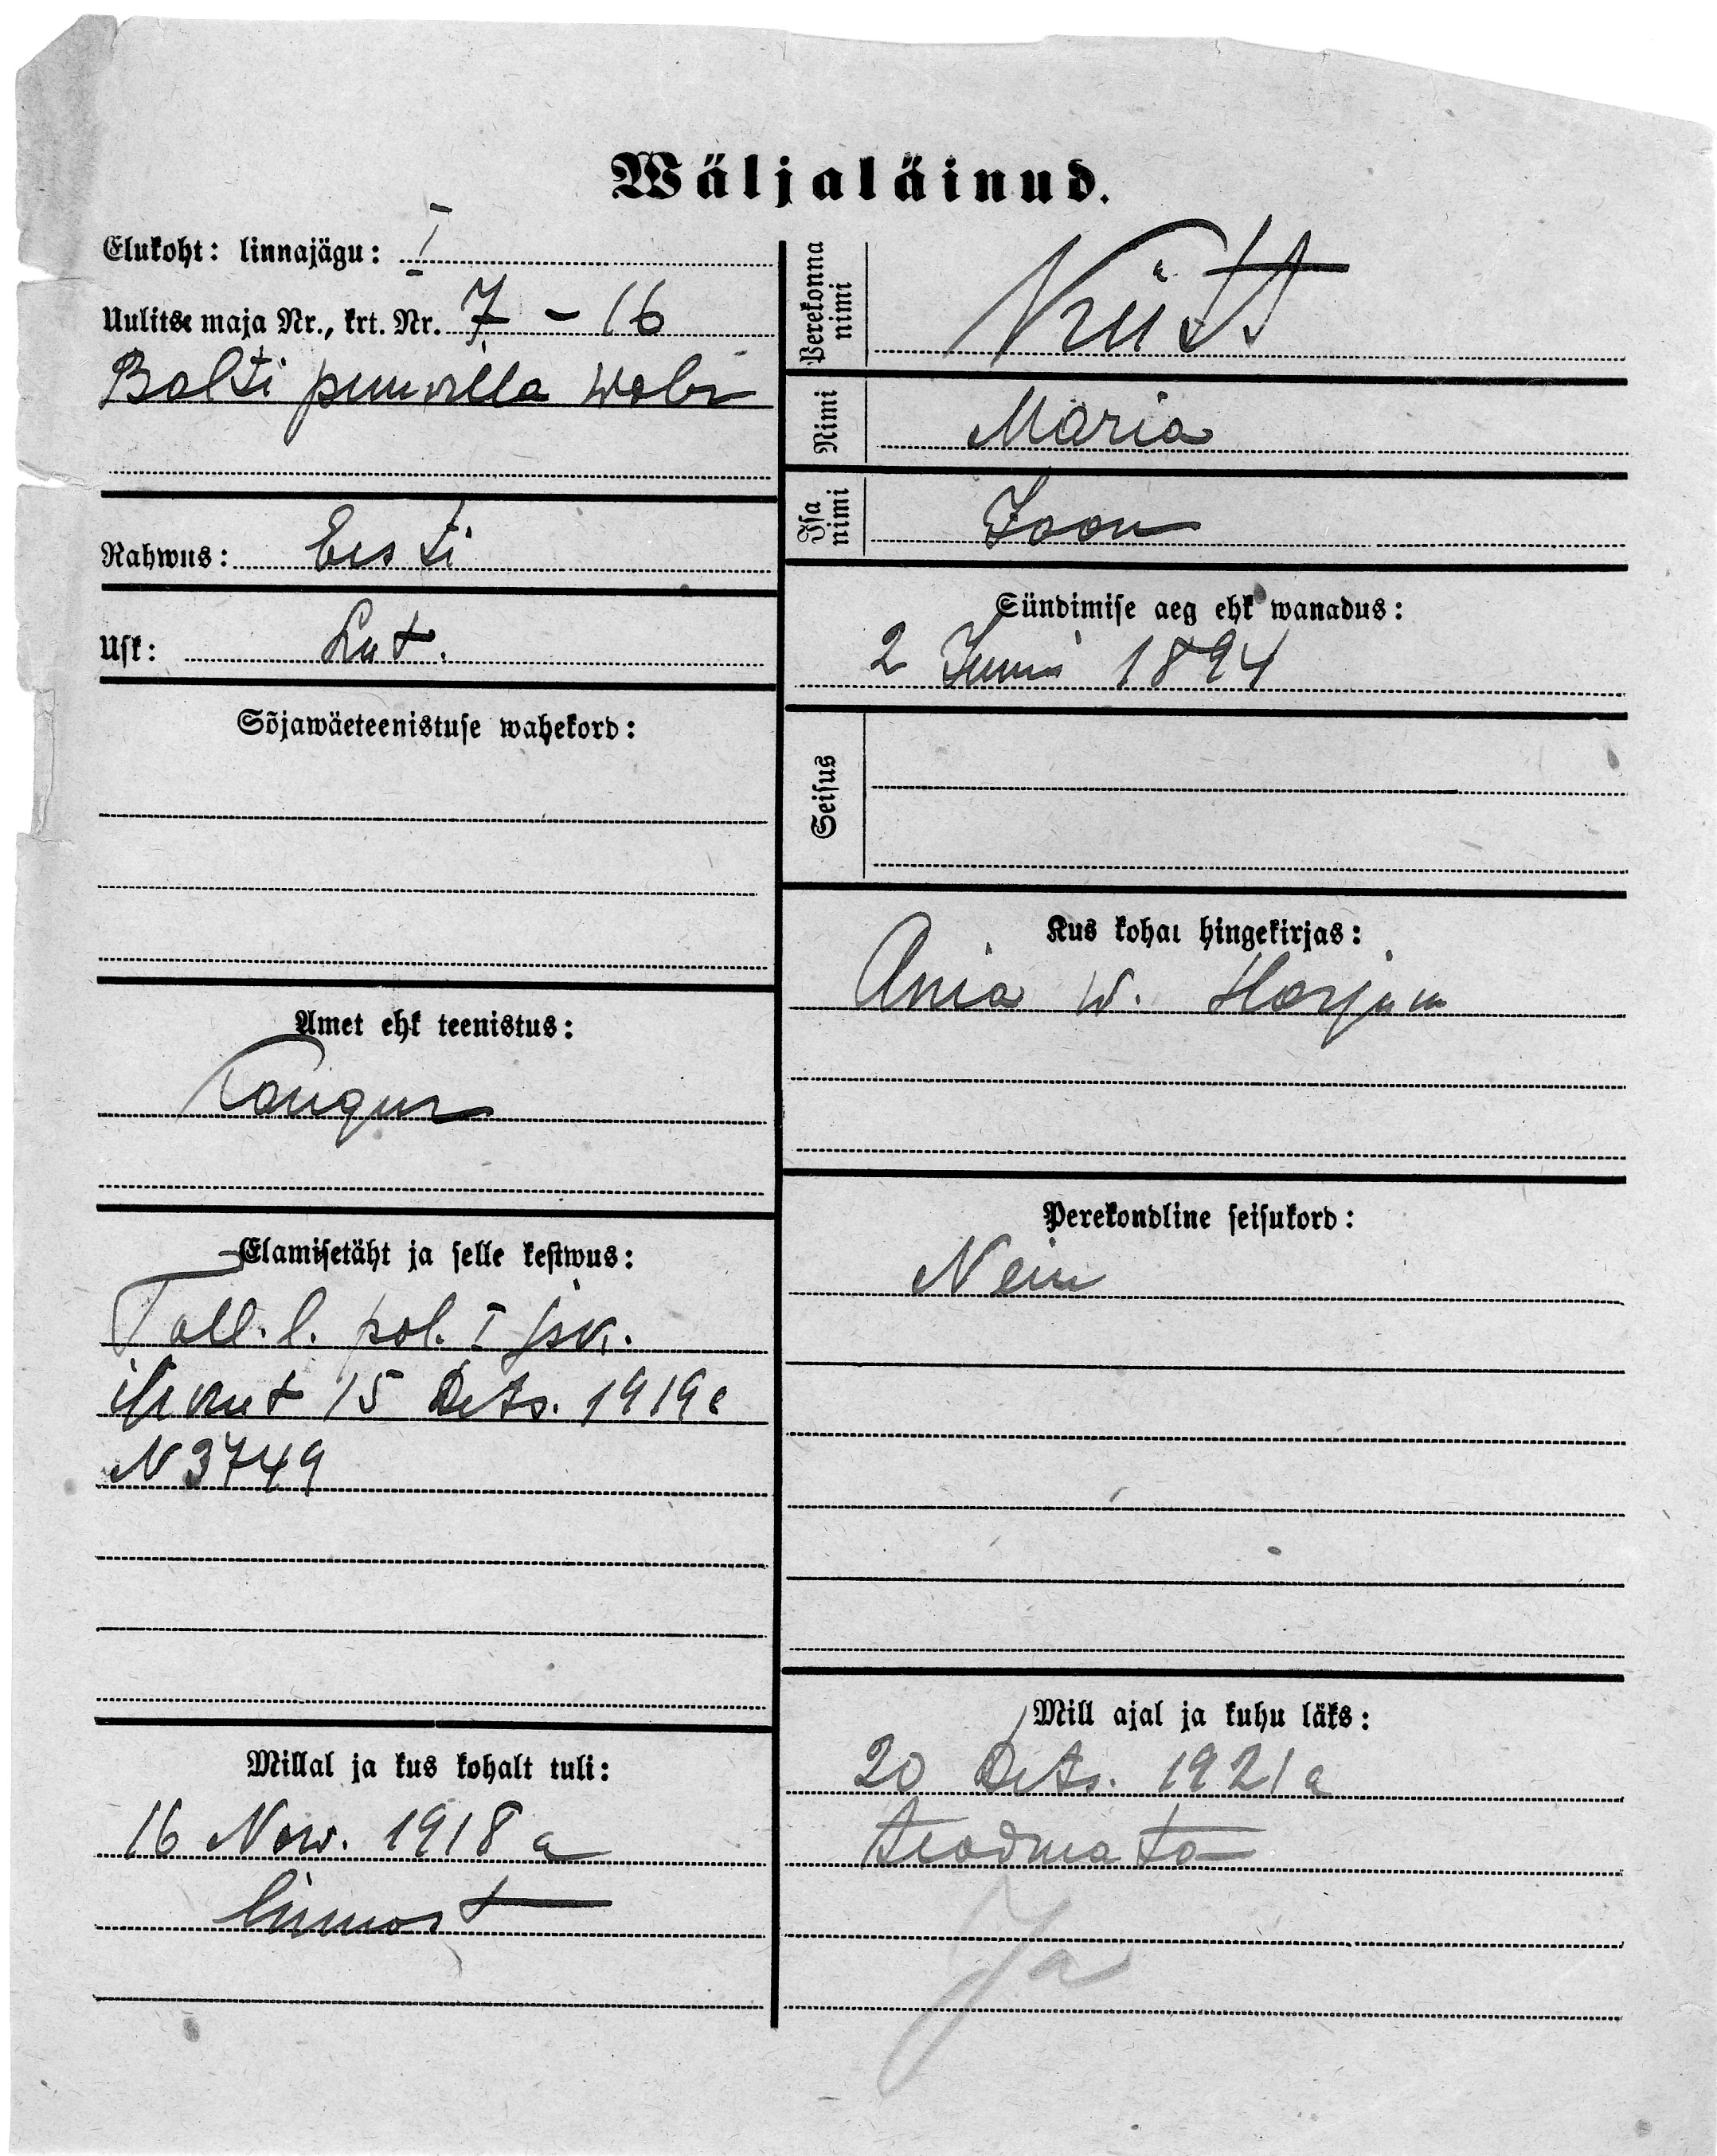 Wäljaläinud.
Elukoht: linnajägu: I
Uulitse maja Nr., krt. Nr. 7 - 16
Balti puuvilla wabr
Rahwus: Eesti
Usk: Lut.
Sõjawäeteenistuse wahekord:
Amet ehk teenistus:
Kangur
Elamisetäht ja selle kestwus:
Tall. l. pol. I jsk.
15 Dets. 1919 a
N 3749
Millal ja kus kohalt tuli:
16 Now. 1918 a
linnast
Perekonna nimi
Nimi Maria
Isa nimi Jaan
Sündimise aeg ehk wanadus:
2 Juuni 1894
Seisus
Kus kohal hingekirjas:
Ania w. Harjum
Perekondline seisukord:
Neiu
Mill ajal ja kuhu läks:
20 Dets. 1921 a
teadmata
Ja